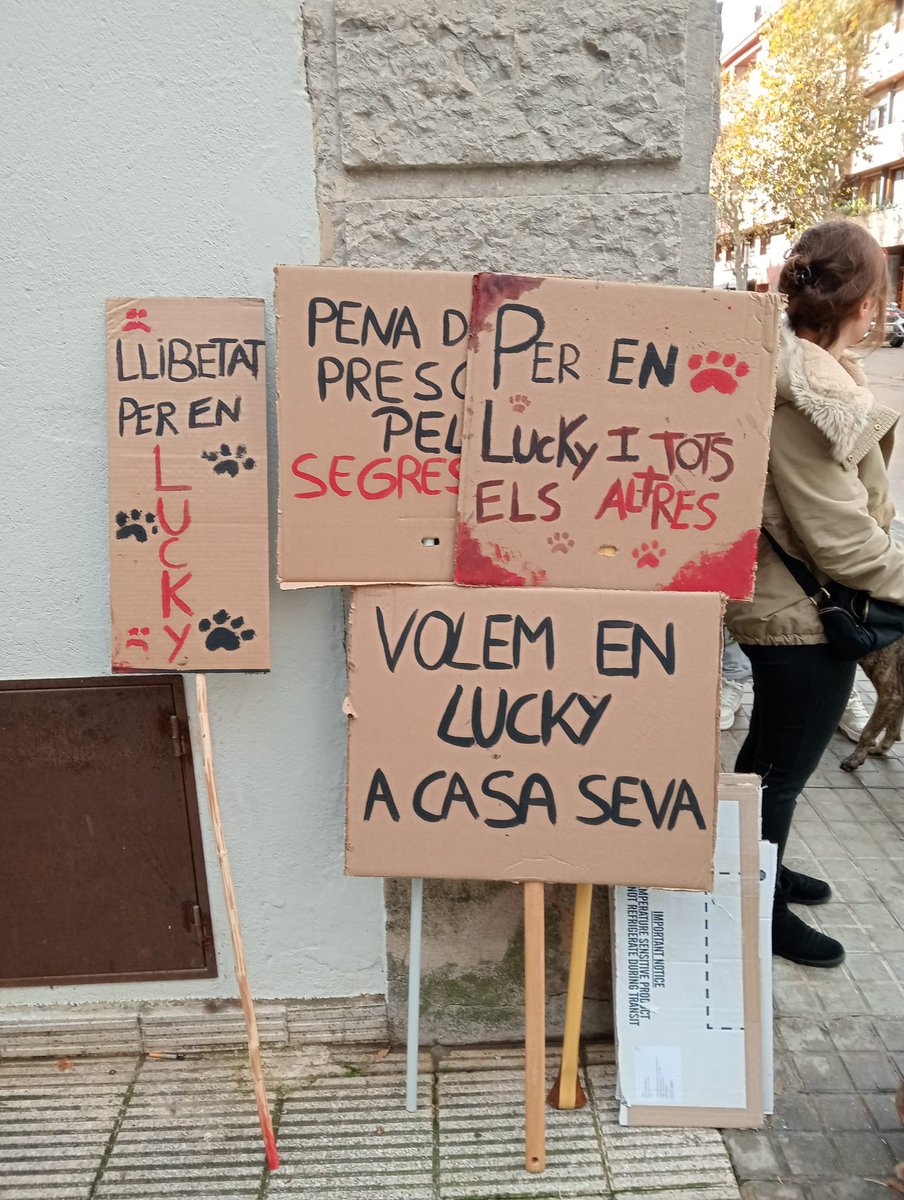 LLIBETAT
PER EN
LUCKY
PENA D
PRESO
PEL
SEGRES
PER EN
LUCKY I TOTS
ELS ALTRES
VOLEM EN
LUCKY
A CASA SEVA
IMPORTANT NOTICE
TEMPERATURE SENSITIVE PRODUCT
NOT REFRIGERATE DURING TRANSIT